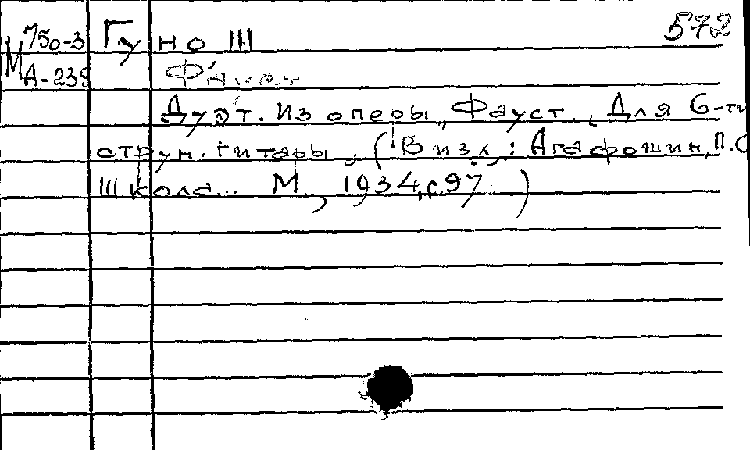 М 750-3 Гуно Ш 572
А-239 Фауст
Дуэт. Из оперы "Фауст". Для 6-ти
струн. гитары. (В изд.: Агафошин, П.С
Школа... М, 1934, с.97.)